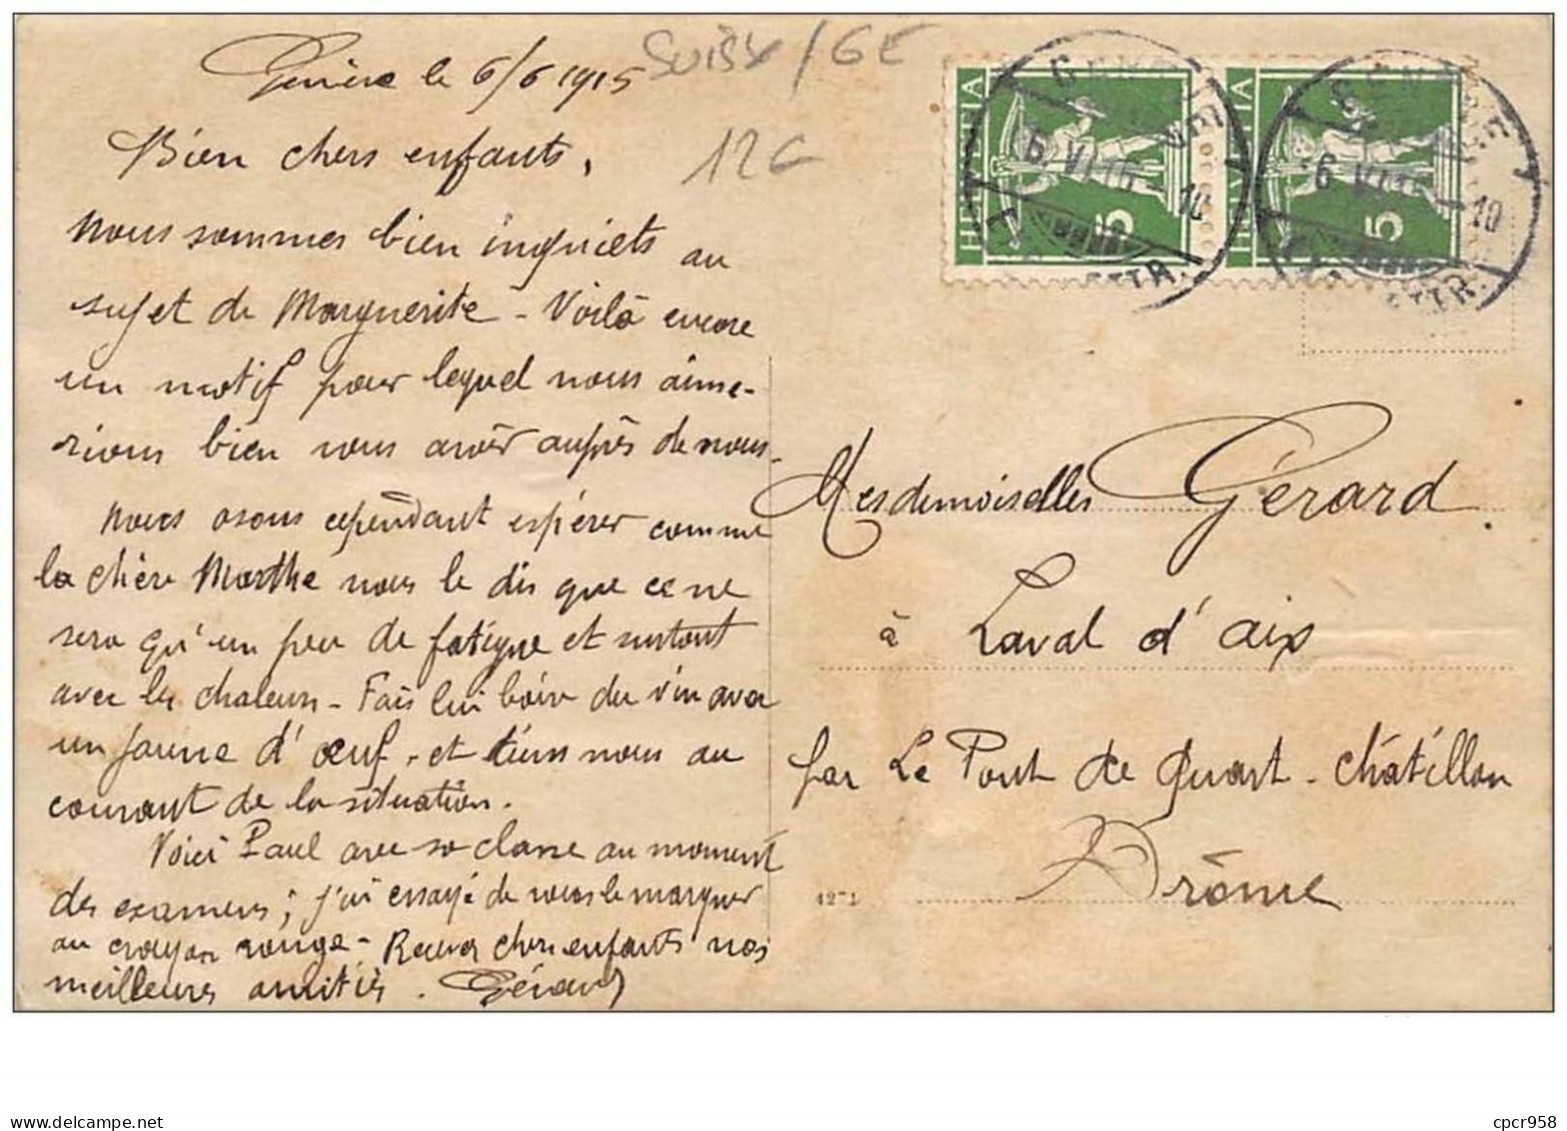 Genève le 6/6 1915
SUISSE / GE
12C
Bien chers enfants,
Nous sommes bien inquiets au
sujet de Marguerite - Voilà encore
un motif pour lequel nous aime-
rions bien vous avoir auprès de nous.
Nous osons cependant espérer comme
la chère Marthe nous le dis que ce ne
sera qu'un peu de fatigue et surtout
avec les chaleurs - Fais lui boire du vin avec
un jaune d'œuf - et tiens nous au
courant de la situation.
Voici Paul avec sa classe au moment
des examens; j'ai essayé de vous le marquer
au crayon rouge - Recevez chers enfants nos
meilleures amitiés. Gérard
HELVETIA 5
HELVETIA 5
6 VI 10
6 VI 10
Mesdemoiselles Gérard.
à Laval d'aix
par Le Pont de Quart - Châtillon
Drôme
4271
delcampe.net
cpcr958